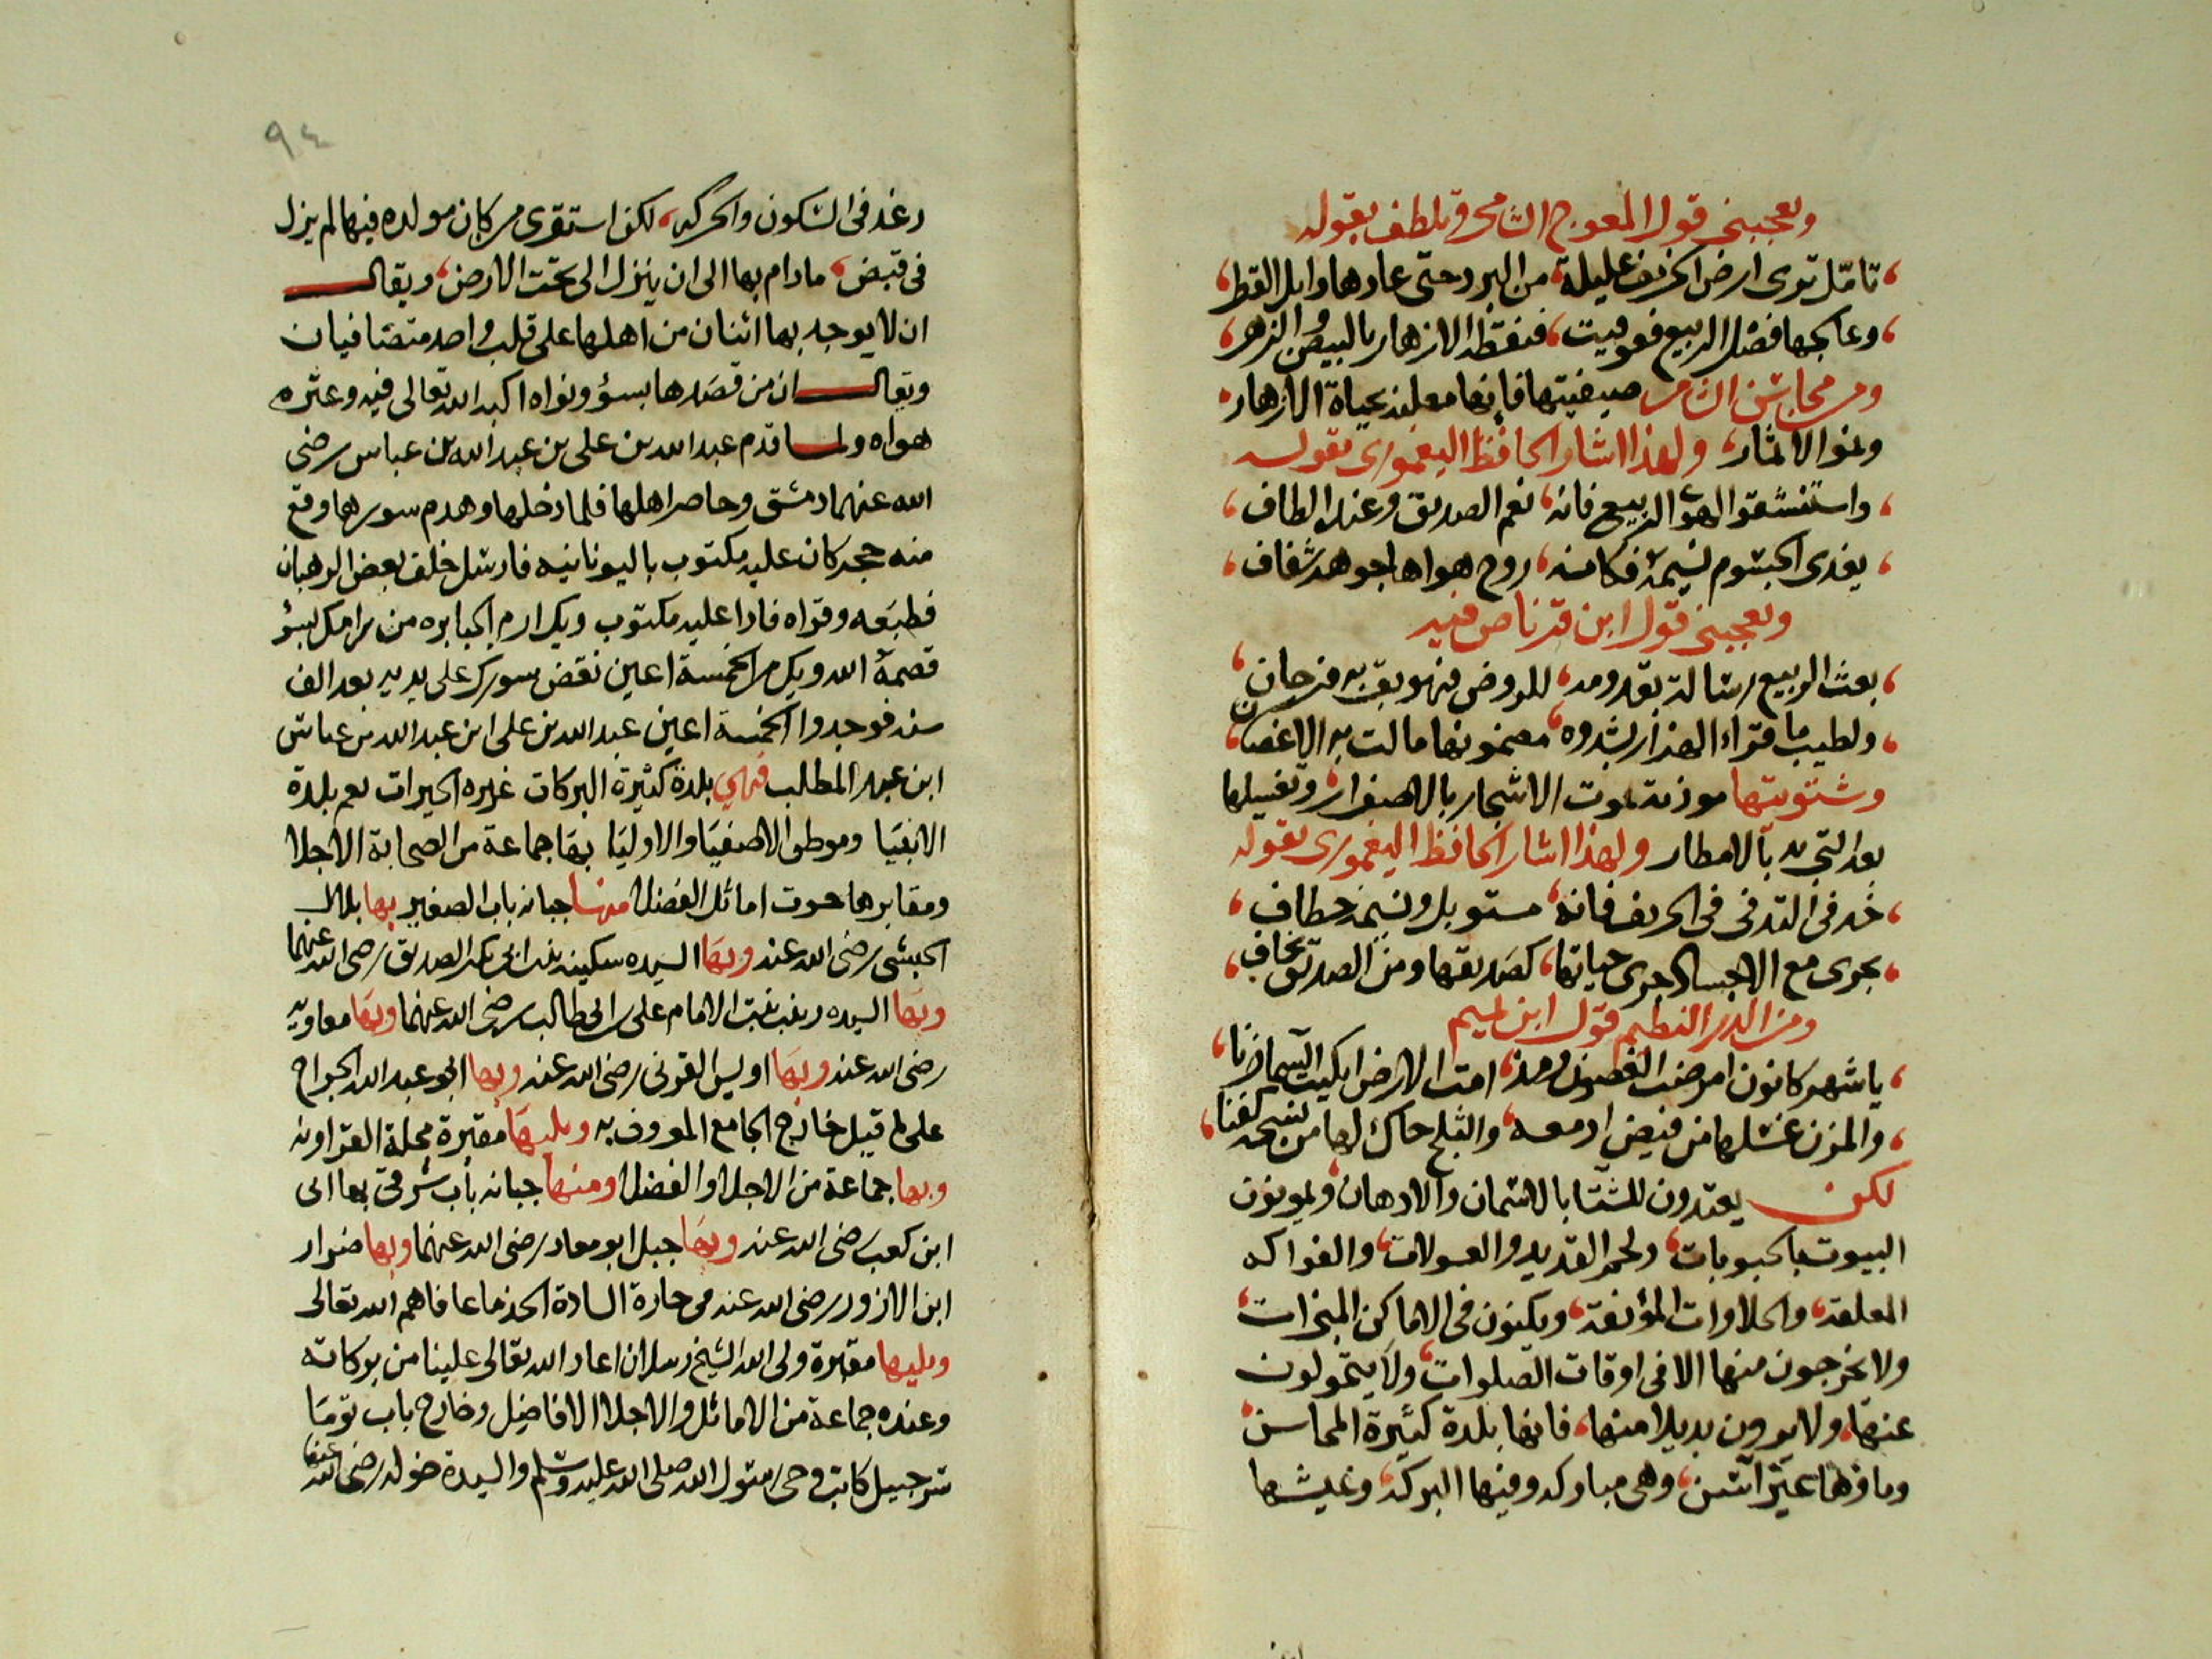 ويعجبني قول المعوج الشامي وتلطف بقوله
تامل ترى ارض الخريف عليلة من البرد حتى عادها وابل القطر
وعالجها فضل الربيع فعوفيت فنقط الازهار بالبيض والزهر
ومن محاسن الشام صيفيتها فانها معلنة بحياة الازهار
ونمو الاثمار ولهذا اشار الحافظ اليغموري بقوله
واستنشقوا لهوا الربيع فانه نعم الصديق وعنده الطاف
يغذي الجسوم نسيمه فكانه روح هواها جوهر شفاف
ويعجبني قول ابن قرناص فيه
بعث الربيع رسالة بقدومه للروض فهو بقربه فرحان
ولطيب ما قراء الهزار بشدوه مضمونها مالت به الاغصان
وشتويتها موذنة بموت الاشجار بالاصفرار وتغسيلها
بعد التجريد بالامطار ولهذا اشار الحافظ اليغموري بقوله
خذ في التدفي في الخريف فانه مستوبل ونسيمه خطاف
يجري مع الاجساد جري حياتها كصديقها ومن الصديق يخاف
ومن الدر النظيم قول ابن تميم
يا شهر كانون امرضت الغصون ومذ امت الارض ابكيت السما حزنا
والمزن غسلها من فيض ادمعه والثلج حاك لها من نسجه كفنا
لكن يعتدون للشتا بالاسمان والادهان ويمونون
البيوت بالحبوبات ولحم القديد والعسولات والفواكه
المعلقة والحلاوات المؤنقة ويكنون في الاماكن المنزات
ولا يخرجون منها الا في اوقات الصلوات ولا يتحولون
عنها ولا يرون بديلا منها فانها بلدة كثيرة المحاسن
وماوها غير آسن وهي مباركه وفيها البركة وعيشها
٩٤
رغد في السكون والحركه لكن استقرى من كان مولده فيها لم يزل
في قبض ما دام بها الى ان ينزل الى تحت الارض ويقال
ان لا يوجد بها اثنان من اهلها على قلب واحد متصافيان
ويقال ان من قصدها بسؤ ونواه اكبه الله تعالى فيه وعثره
هواه ولما قدم عبد الله بن علي بن عبد الله بن عباس رضي
الله عنهما دمشق وحاصر اهلها فلما دخلها وهدم سورها وقع
منه حجر كان عليه مكتوب باليونانيه فارسل خلف بعض الرهبان
فطبعه وقراه فاذا عليه مكتوب ويك ارم الجبابره من رامك بسؤ
قصمه الله ويك من الخمسة اعين نقض سورك على يديه بعد الف
سنه فوجدوا الخمسة اعين عبد الله بن علي ابن عبد الله بن عباس
ابن عبد المطلب فهي بلدة كثيرة البركات غزيره الخيرات نعم بلدة
الاتقيا وموطن الاصفيا والاوليا بها جماعة من الصحابة الاجلا
ومقابرها حوت اماثل الفضلا منها جبانه باب الصغير بها بلال
الحبشي رضي الله عنه وبها السيده سكينه بنت ابي بكر الصديق رضي الله عنهما
وبها السيده زينب بنت الامام علي بن ابي طالب رضي الله عنهما وبها معاويه
رضي الله عنه وبها اويس القرني رضي الله عنه وبها ابو عبد الله الجراح
على ما قيل خارج الجامع المعروف به ويليها مقبرة محلة القراونه
وبها جماعة من الاجلا والفضلا ومنها جبانه باب شرقي بها ابي
ابن كعب رضي الله عنه وبها جبل ابو معاد رضي الله عنهما وبها ضرار
ابن الازور رضي الله عنه من حارة السادة الجذما عافاهم الله تعالى
ويليها مقبرة ولي الله الشيخ رسلان اعاد الله تعالى علينا من بركاته
وعنده جماعة من الاماثل والاجلا الافاضل وخارج باب توما
شرحبيل كاتب وحي رسول الله صلى الله عليه وسلم والسيدة خوله رضي الله عنهما